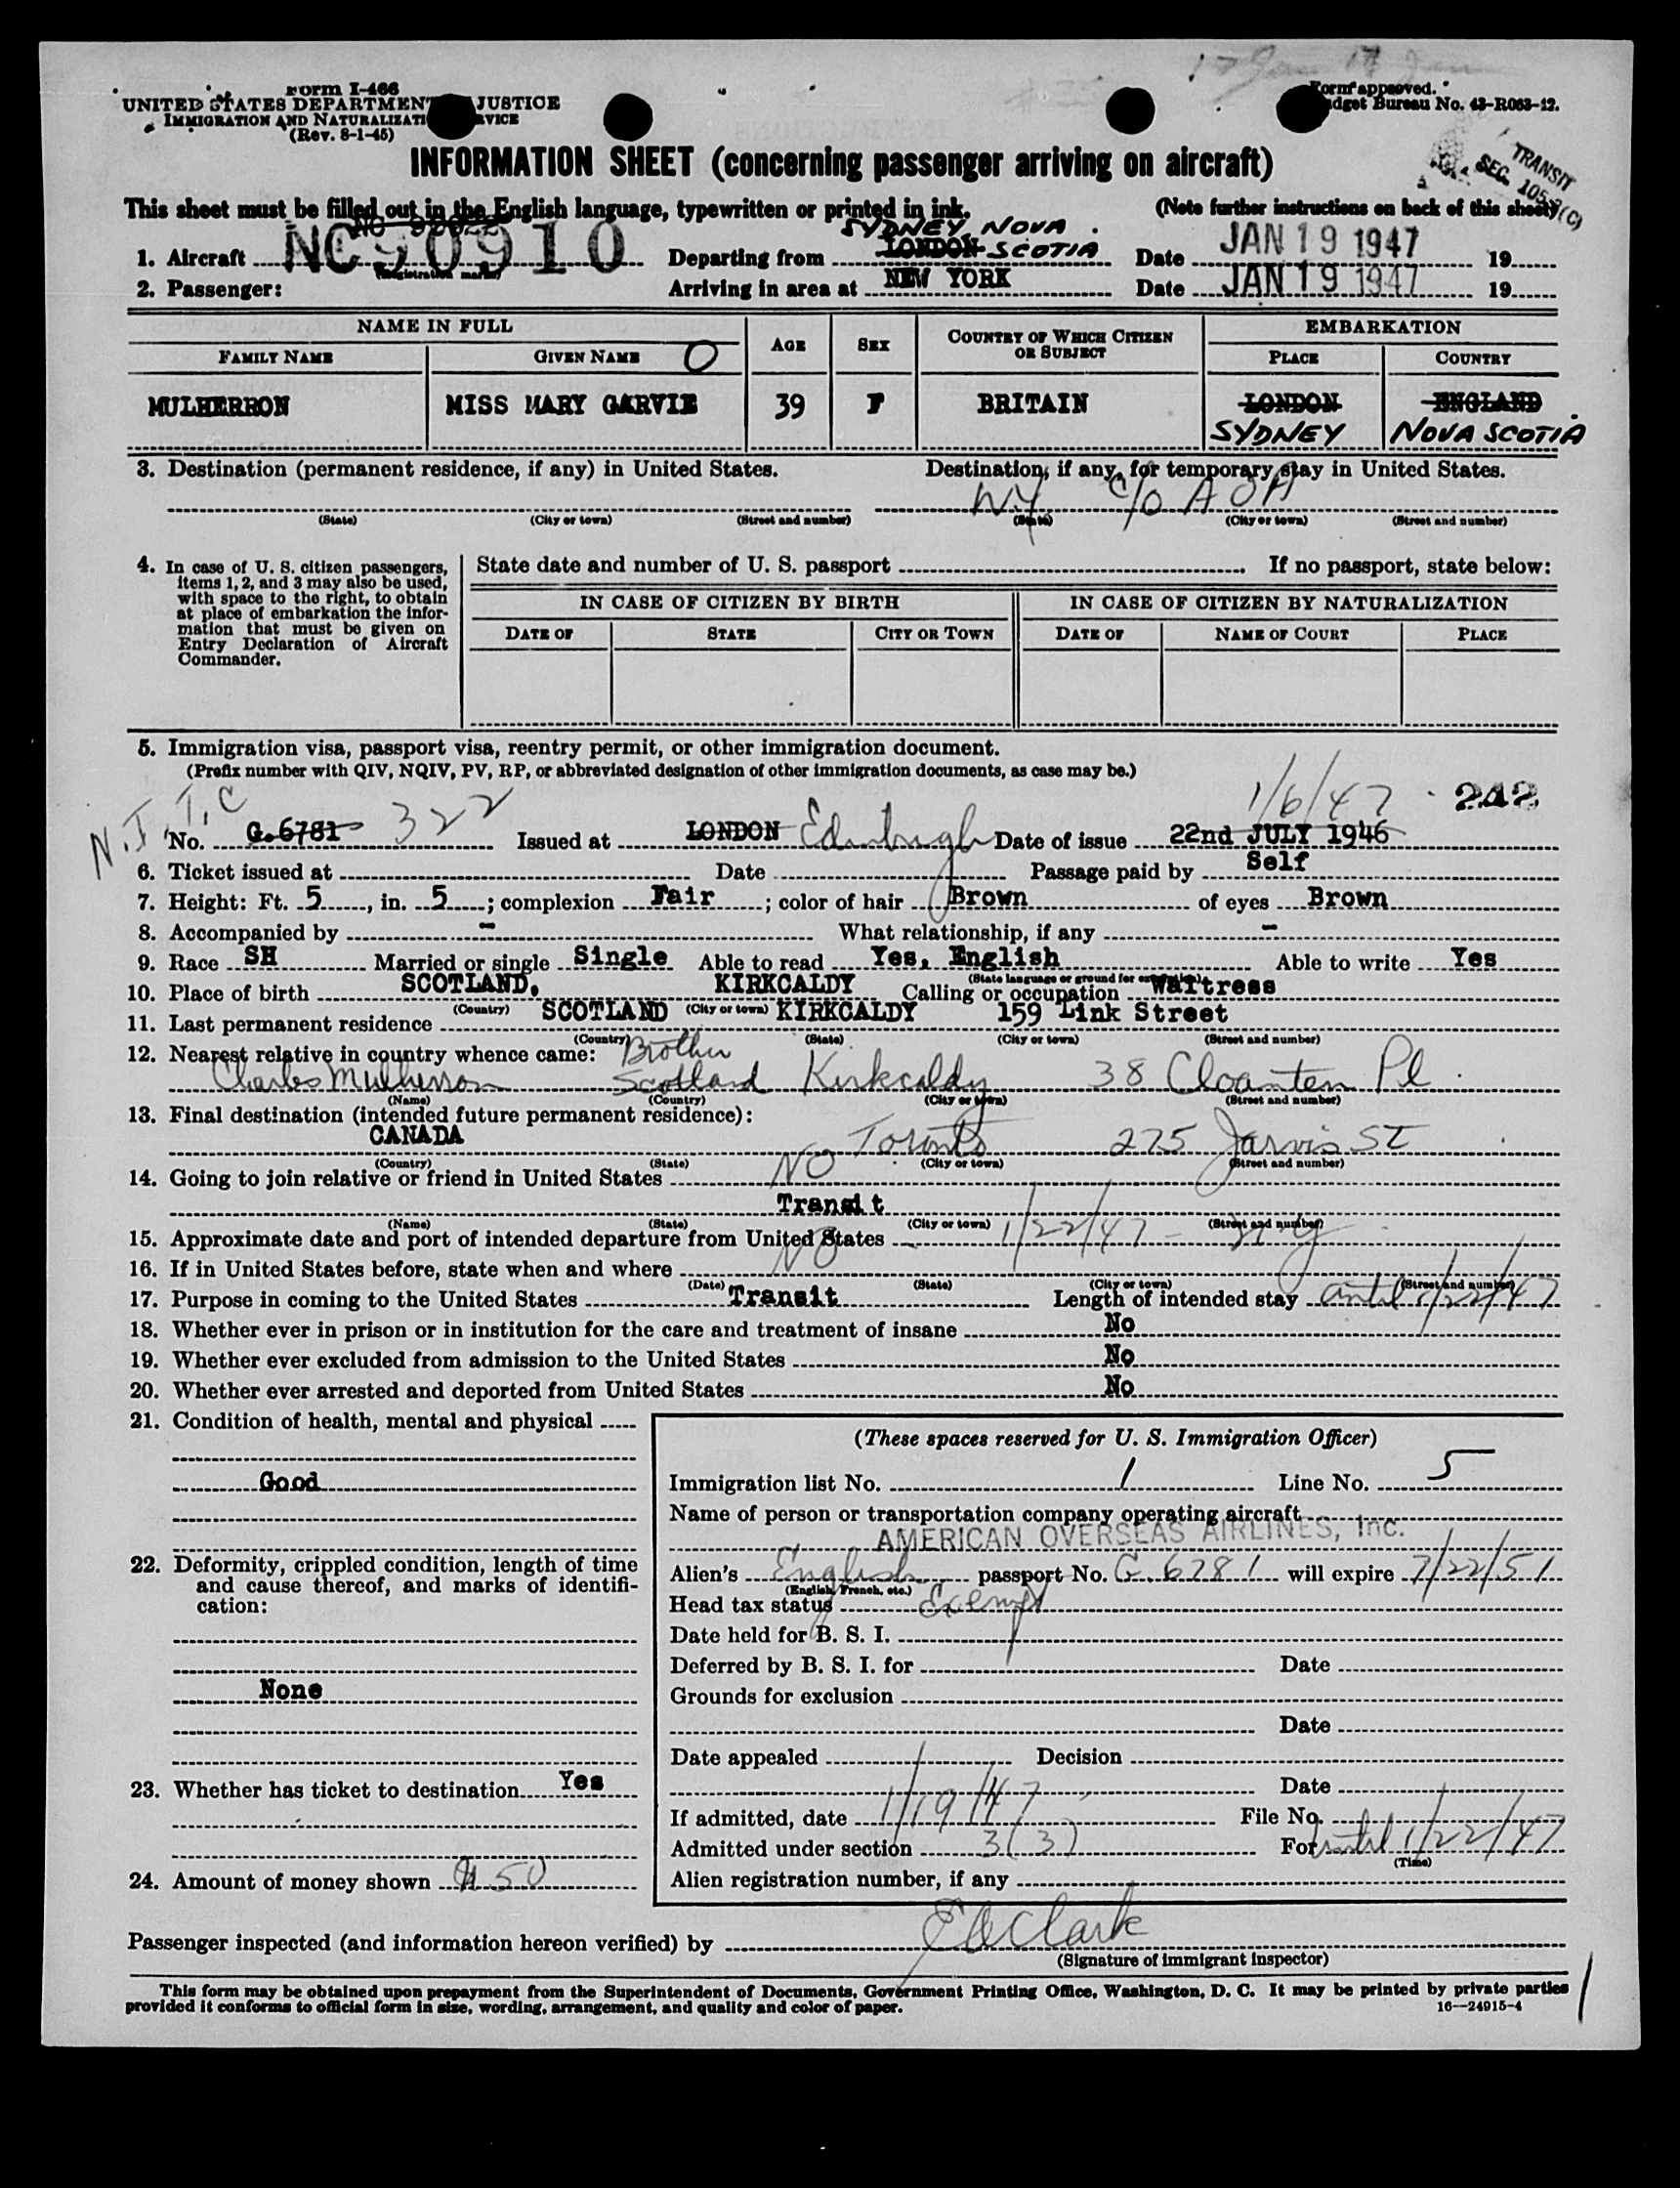 Form I-466
UNITED STATES DEPARTMENT JUSTICE
IMMIGRATION AND NATURALIZATI RVICE
(Rev. 8-1-45)
Form approved.
dget Bureau No. 43-R063-12.
TRANSIT
SEC. 105.3(C)
INFORMATION SHEET (concerning passenger arriving on aircraft)
This sheet must be filled out in the English language, typewritten or printed in ink.
(Note further instructions on back of this sheet)
SYDNEY, NOVA
1. Aircraft NC90910 Departing from LONDON SCOTIA Date JAN 19 1947 19
(Registration marks)
2. Passenger: Arriving in area at NEW YORK Date JAN 19 1947 19
NAME IN FULL AGE SEX COUNTRY OF WHICH CITIZEN OR SUBJECT EMBARKATION
FAMILY NAME GIVEN NAME O PLACE COUNTRY
MULHERRON MISS MARY GARVIE 39 F BRITAIN LONDON ENGLAND
SYDNEY NOVA SCOTIA
3. Destination (permanent residence, if any) in United States. Destination, if any, for temporary stay in United States.
NY c/o A O A
(State) (City or town) (Street and number) (State) (City or town) (Street and number)
4. In case of U. S. citizen passengers,
items 1, 2, and 3 may also be used,
with space to the right, to obtain
at place of embarkation the infor-
mation that must be given on
Entry Declaration of Aircraft
Commander.
State date and number of U. S. passport If no passport, state below:
IN CASE OF CITIZEN BY BIRTH IN CASE OF CITIZEN BY NATURALIZATION
DATE OF STATE CITY OR TOWN DATE OF NAME OF COURT PLACE
5. Immigration visa, passport visa, reentry permit, or other immigration document.
(Prefix number with QIV, NQIV, PV, RP, or abbreviated designation of other immigration documents, as case may be.)
1/6/47 242
No. G.6781 322 Issued at LONDON Edinburgh Date of issue 22nd JULY 1946
6. Ticket issued at Date Passage paid by Self
7. Height: Ft. 5, in. 5; complexion Fair; color of hair Brown of eyes Brown
8. Accompanied by - What relationship, if any -
9. Race SH Married or single Single Able to read Yes, English Able to write Yes
(State language or ground for exemption)
10. Place of birth SCOTLAND, KIRKCALDY Calling or occupation Waitress
(Country) (City or town)
11. Last permanent residence SCOTLAND KIRKCALDY 159 Link Street
(Country) (State) (City or town) (Street and number)
12. Nearest relative in country whence came: Brother
Charles Mulherron Scotland Kirkcaldy 38 Cloanten Pl.
(Name) (Country) (City or town) (Street and number)
13. Final destination (intended future permanent residence):
CANADA Toronto 275 Jarvis ST
(Country) (State) (City or town) (Street and number)
14. Going to join relative or friend in United States NO
Transit
(Name) (State) (City or town) (Street and number)
15. Approximate date and port of intended departure from United States 1/22/47 -
16. If in United States before, state when and where NO
(Date) (State) (City or town) (Street and number)
17. Purpose in coming to the United States Transit Length of intended stay until 1/22/47
18. Whether ever in prison or in institution for the care and treatment of insane No
19. Whether ever excluded from admission to the United States No
20. Whether ever arrested and deported from United States No
21. Condition of health, mental and physical
Good
22. Deformity, crippled condition, length of time
and cause thereof, and marks of identifi-
cation:
None
23. Whether has ticket to destination Yes
24. Amount of money shown $50
(These spaces reserved for U. S. Immigration Officer)
Immigration list No. 1 Line No. 5
Name of person or transportation company operating aircraft
AMERICAN OVERSEAS AIRLINES, Inc.
Alien's English passport No. G.6781 will expire 7/22/51
(English, French, etc.)
Head tax status Exempt
Date held for B. S. I.
Deferred by B. S. I. for Date
Grounds for exclusion
Date
Date appealed Decision
Date
If admitted, date 1/19/47 File No.
Admitted under section 3(3) For until 1/22/47
(Time)
Alien registration number, if any
Passenger inspected (and information hereon verified) by E Clark
(Signature of immigrant inspector)
This form may be obtained upon prepayment from the Superintendent of Documents, Government Printing Office, Washington, D. C. It may be printed by private parties
provided it conforms to official form in size, wording, arrangement, and quality and color of paper. 16—24915-4